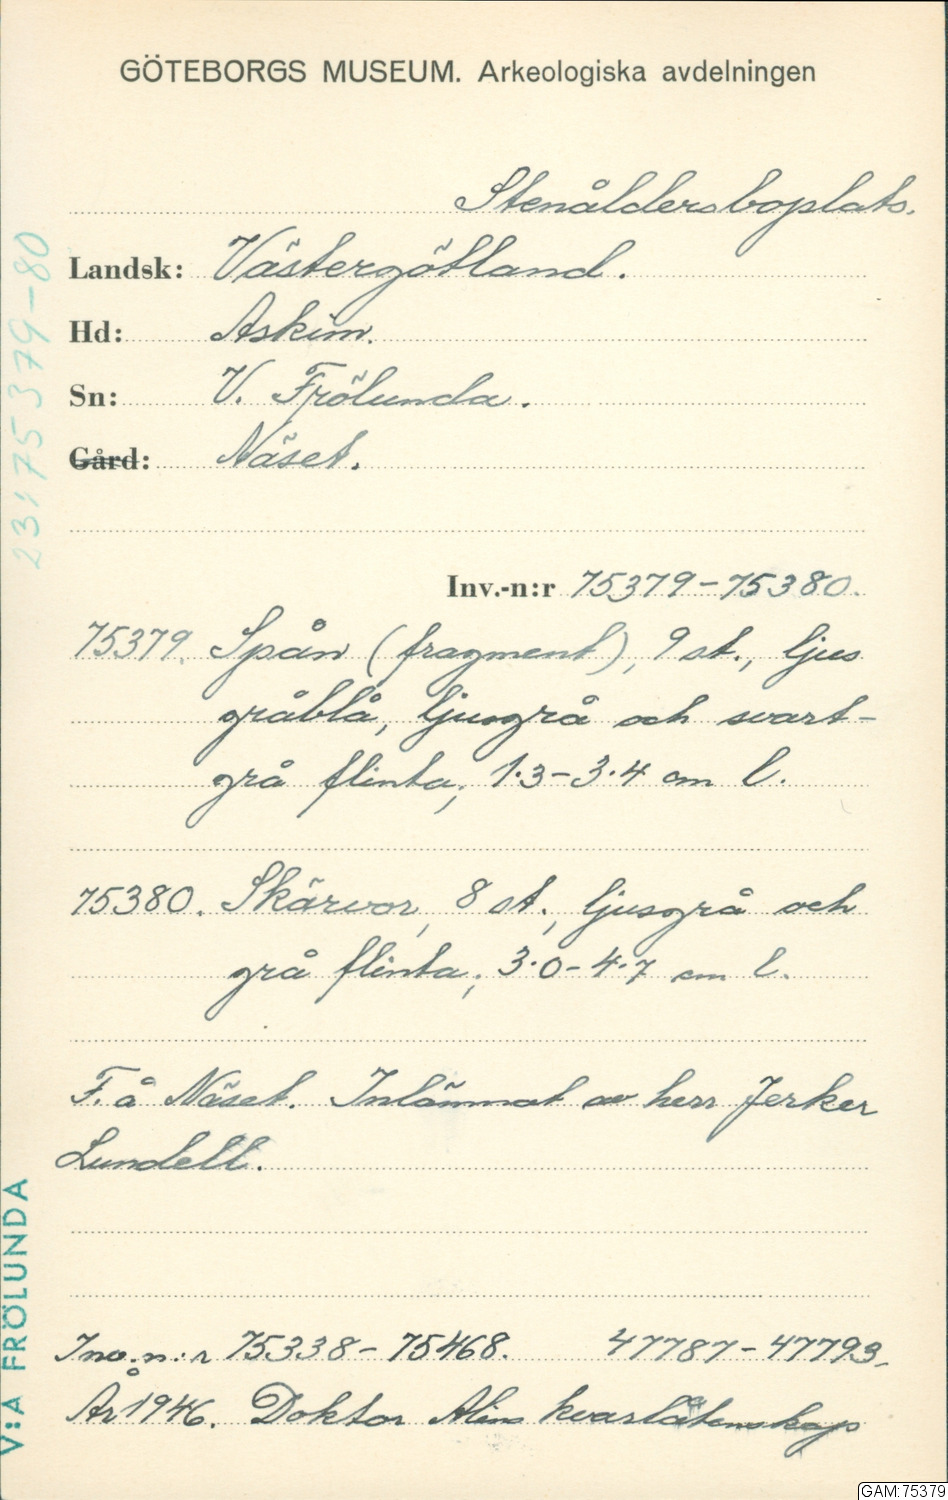 GÖTEBORGS MUSEUM. Arkeologiska avdelningen
Stenåldersboplats.
Landsk: Västergötland.
Hd: Askim.
Sn: V. Frölunda.
Gård: Näset.
Inv.-n:r 75379-75380.
75379. Spån (fragment), 9 st., ljus
gråblå, ljusgrå och svart-
grå flinta; 1.3-3.4 cm l.
75380. Skärvor, 8 st., ljusgrå och
grå flinta; 3.0-4.7 cm l.
F. å Näset. Inlämnat av herr Jerker
Lundell.
Inv.n:r 75338-75468. 47787-47793.
År 1946. Doktor Alins kvarlåtenskap
23:75379-80
V:A FRÖLUNDA
GAM:75379